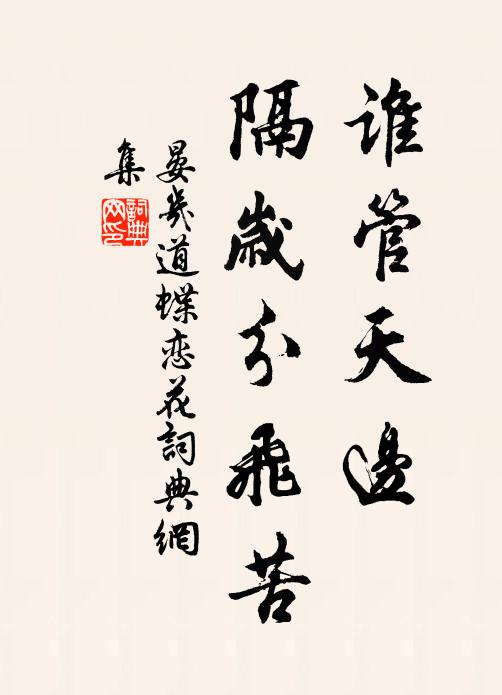 誰管天邊
隔歲分飛苦
晏幾道蝶恋花詞典網
集
詞典
网印